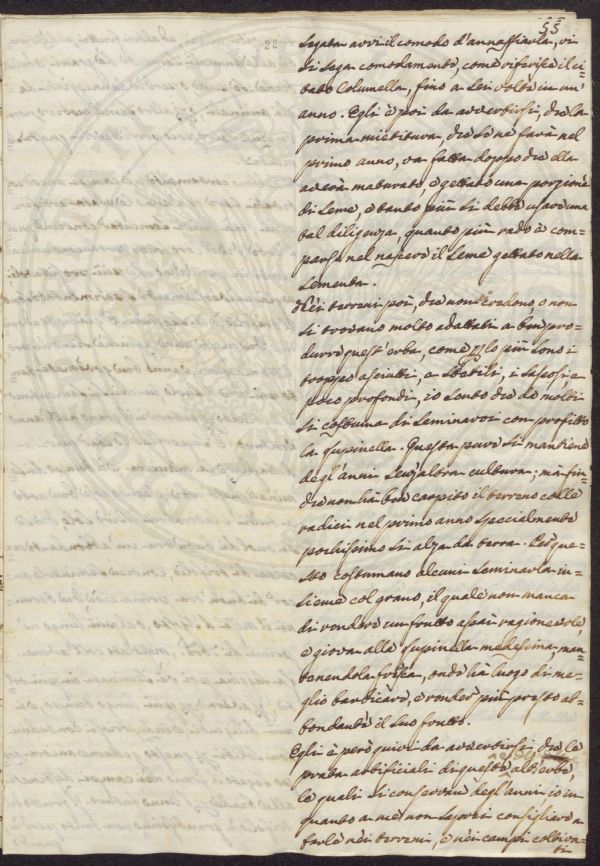 55
28
segata avvi il comodo d'annaffiarla, vi
si sega comodamente, come riferisce il ci=
tato Columella, fino a sei volte in un'
anno. Egli è poi da avvertirsi, che la
prima mietitura, che se ne farà nel
primo anno, va fatta doppo che ella
averà maturato e gettato una porzione
di seme, e tanto più si debbe usare una
tal diligenza, quanto più rado è com=
parso nel nascere il seme gettato nella
sementa.
Nei terreni poi, che non si credono, o non
si trovano molto adattati a ben pro=
durre quest'erba, come p lo più sono i
troppo asciutti, e sterili, i sassosi, e
poco profondi, io sento che da molti
si costuma di seminarvi con profitto
la lupinella. Questa pure si mantiene
degl'anni senz'altra cultura; ma fin=
che non hà ben carpito il terreno colle
radici nel primo anno specialmente
pochissimo si alza da terra. Per que=
sto costumano alcuni seminarla in=
sieme col grano, il quale non manca
di rendere un frutto assai ragionevole,
e giova alla lupinella medesima man=
tenendola fresca, onde hà luogo di me=
glio barbicare, e render più presto ab=
bondante il suo frutto.
Egli è però quivi da avvertirsi, che le
prata artificiali di queste erbe,
le quali si conservan degl'anni io in
quanto a me non saprei consigliare a
farle nei terreni, e nei campi coltiva=
ti